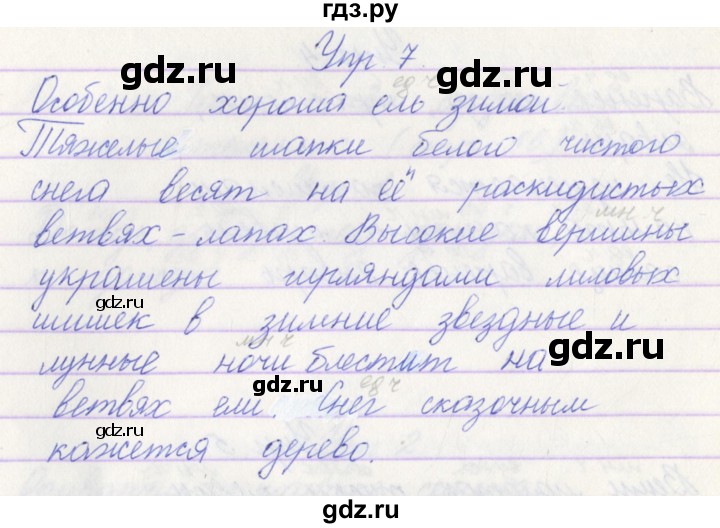 гдз.ру
gdz.ru
Упр 7.
ед ч
Особенно хороша ель зимой.
Тяжелые шапки белого чистого
gdz.ru
gdz.ru
снега весят на её раскидистых
мн ч
ветвях - лапах. Высокие вершины
gdz.ru
украшены гирляндами лиловых
gdz.ru
шишек в зимние звездные и
мн ч
gdz.ru
лунные ночи блестит на
ед ч
gdz.ru
ветвях ели. Снег сказочным
gdz.ru
кажется дерево.
gdz.ru
gdz.ru